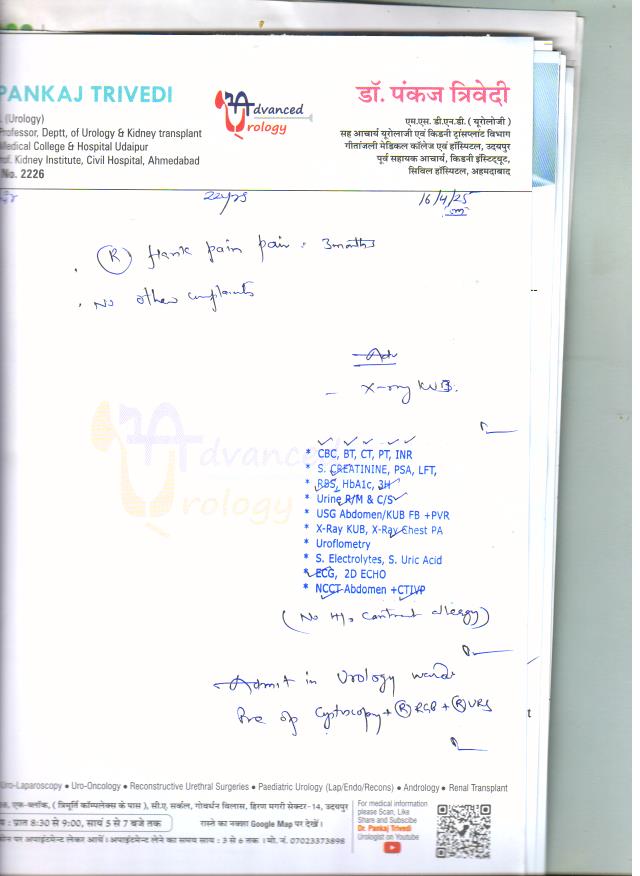 PANKAJ TRIVEDI
. (Urology)
Professor, Deptt. of Urology & Kidney transplant
Medical College & Hospital Udaipur
Prof. Kidney Institute, Civil Hospital, Ahmedabad
No. 2226
Advanced
Urology
डॉ. पंकज त्रिवेदी
एम.एस. डी.एन.बी. ( यूरोलोजी )
सह आचार्य यूरोलाजी एवं किडनी ट्रांसप्लांट विभाग
गीतांजली मेडिकल कॉलेज एवं हॉस्पिटल, उदयपुर
पूर्व सहायक आचार्य, किडनी इंस्टिट्यूट,
सिविल हॉस्पिटल, अहमदाबाद
22yrs
16/4/25
(R) flank pain pain . 3 months
. No other complaints
Adv
- X-ray KUB.
Advanced
Urology
* CBC, BT, CT, PT, INR
* S. CREATININE, PSA, LFT,
* RBS, HbA1c, 3H
* Urine R/M & C/S
* USG Abdomen/KUB FB +PVR
* X-Ray KUB, X-Ray Chest PA
* Uroflometry
* S. Electrolytes, S. Uric Acid
* ECG, 2D ECHO
* NCCT Abdomen +CTIVP
( No H/o contrast allergy )
Admit in Urology ward
Pre op Cystoscopy + (R) RGP + (R) URS
Uro-Laparoscopy • Uro-Oncology • Reconstructive Urethral Surgeries • Paediatric Urology (Lap/Endo/Recons) • Andrology • Renal Transplant
एफ-ब्लॉक, ( त्रिमूर्ति कॉम्पलेक्स के पास ), सी.ए. सर्कल, गोवर्धन विलास, हिरण मगरी सेक्टर-14, उदयपुर
: प्रातः 8:30 से 9:00, सायं 5 से 7 बजे तक
रास्ते का नक्शा Google Map पर देखें।
फोन पर अपाइंटमेन्ट लेकर आयें। अपाइंटमेन्ट लेने का समय सायं : 3 से 6 तक । मो. नं. 07023373898
For medical information
please Scan, Like
Share and Subscibe
Dr. Pankaj Trivedi
Urologist on Youtube